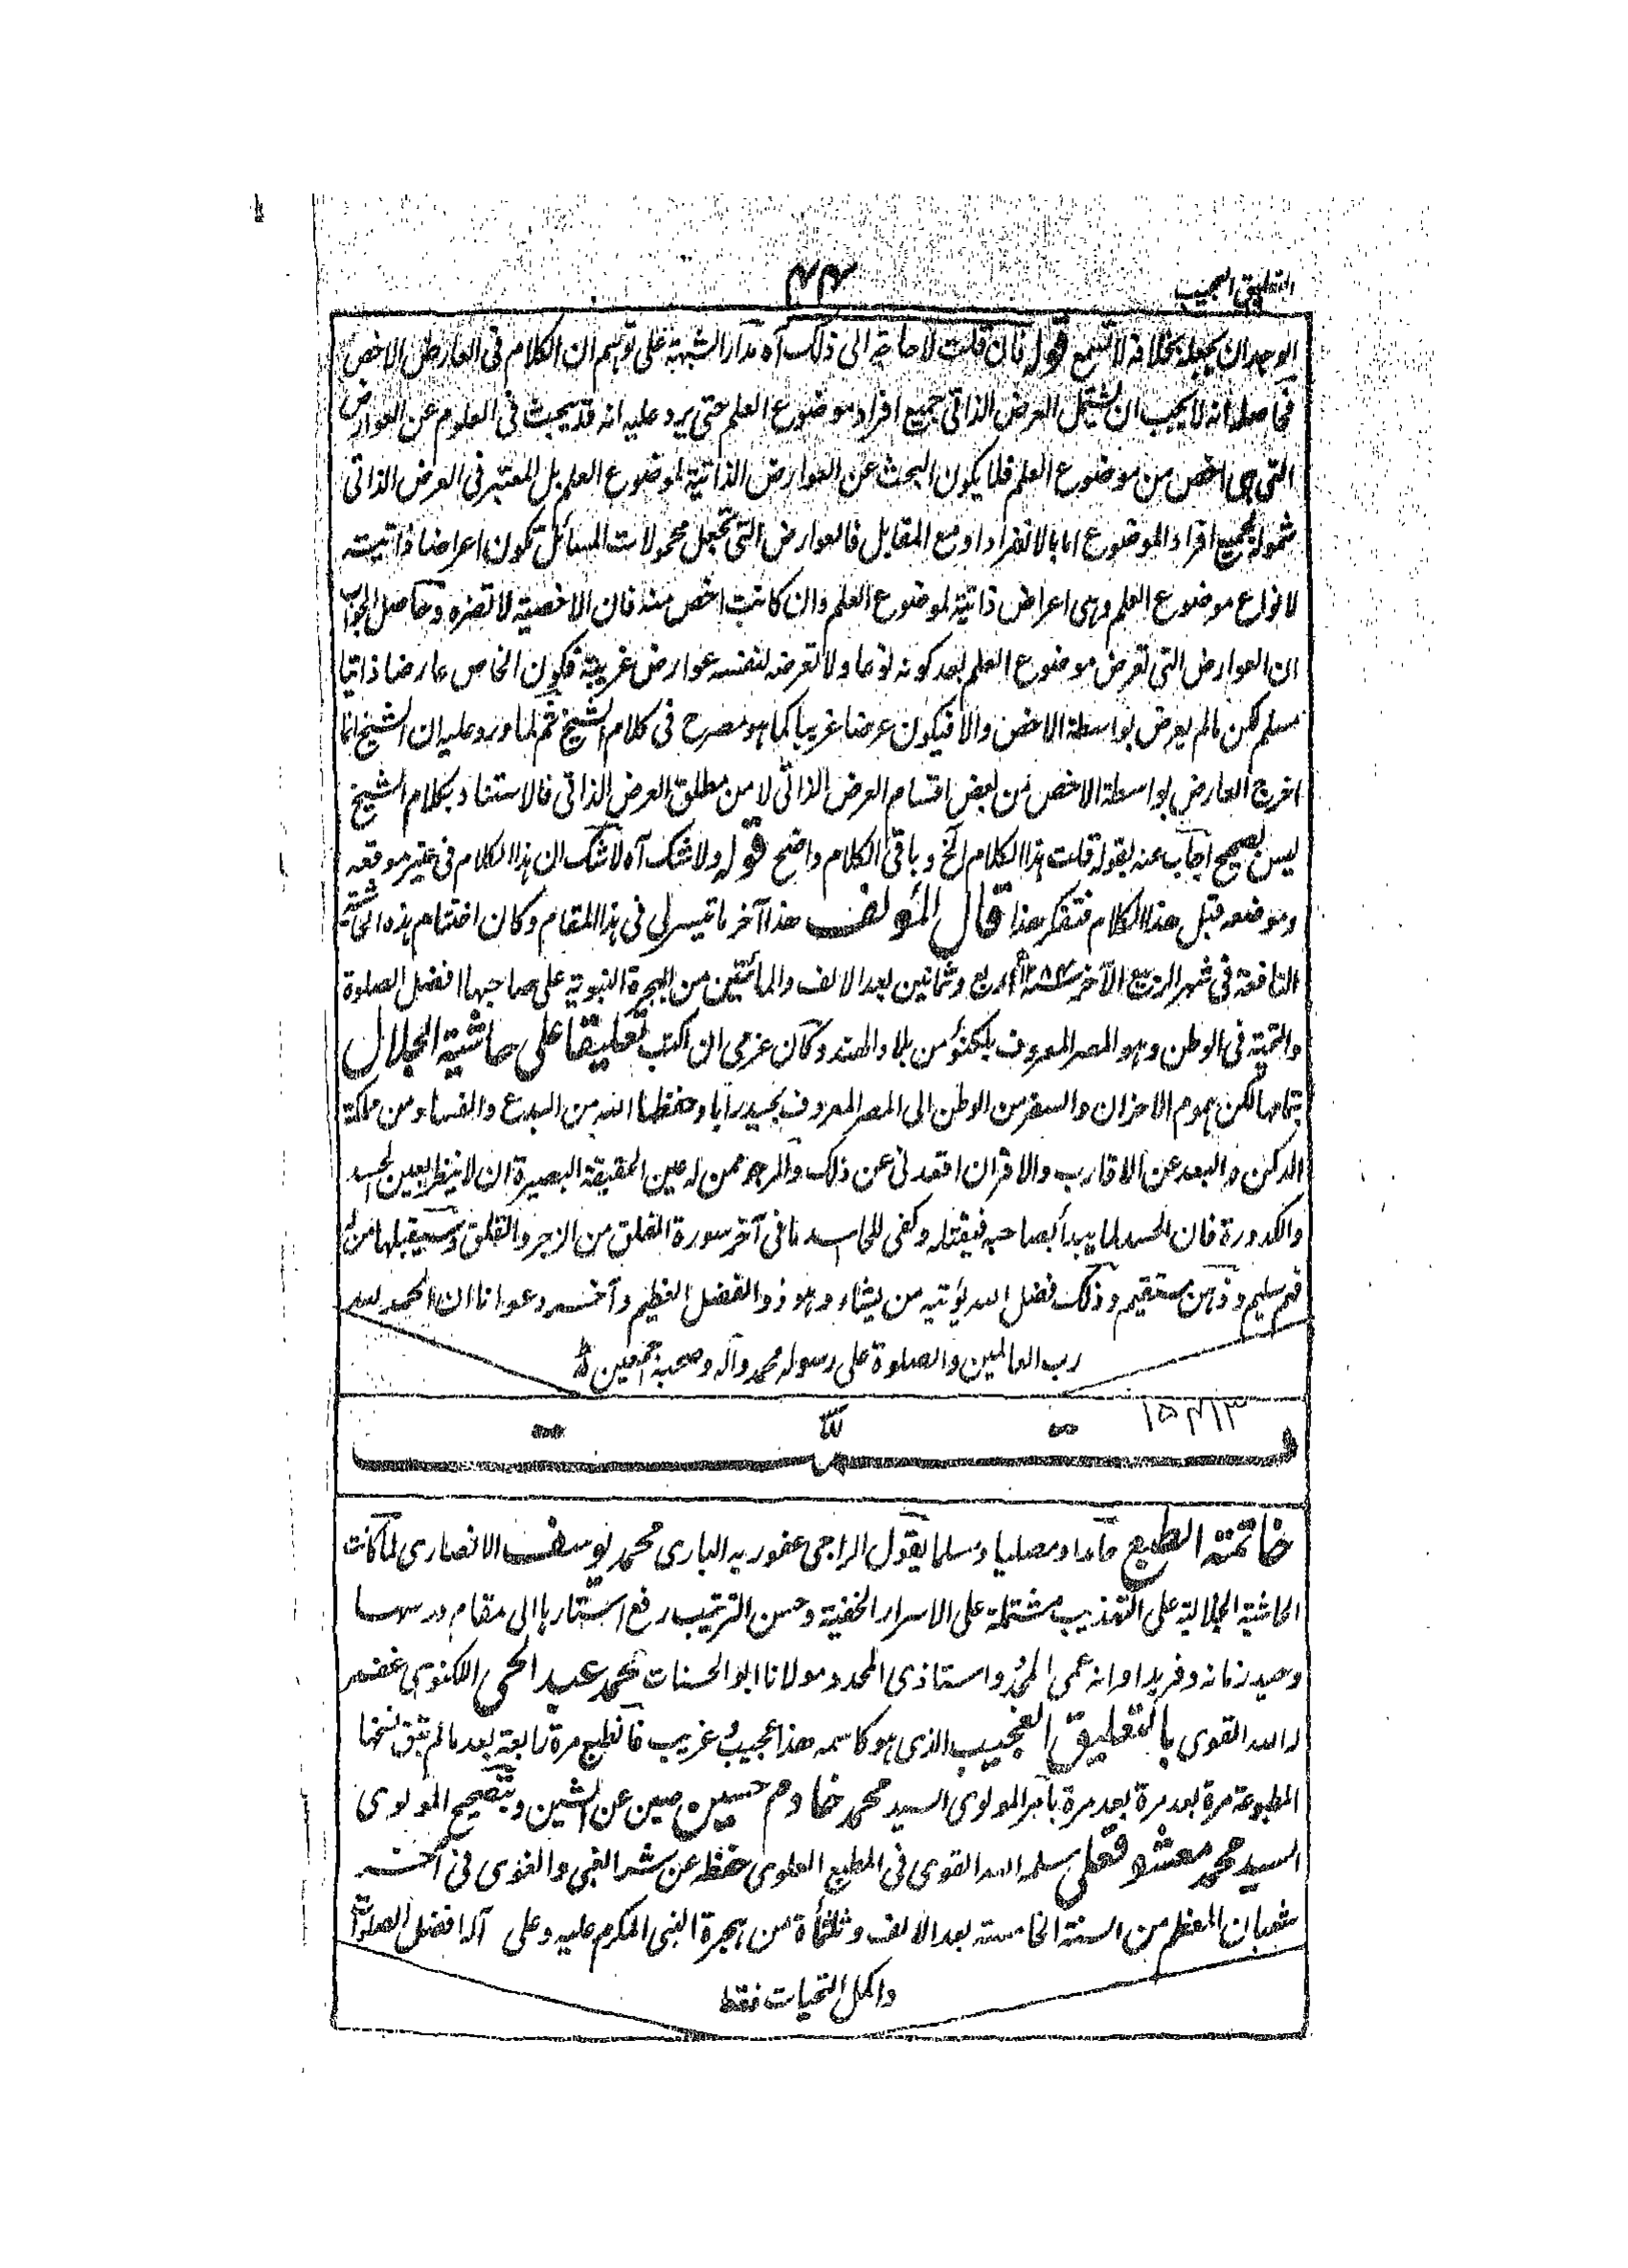 التعليق العجيب
۴۴
الوجدان يجعله بخلافه لا تسمع قوله فان قلت لا حاجة الى ذلك آه مدار الشبهة على توهم ان الكلام في العارض الاخص
فحاصله انه لا يجب ان يشمل العرض الذاتي جميع افراد موضوع العلم حتى يرد عليه انه قد يبحث في العلوم عن العوارض
التي هي اخص من موضوع العلم فلا يكون البحث عن العوارض الذاتية لموضوع العلم بل المعتبر في العرض الذاتي
شموله لجميع افراد الموضوع اما بالانفراد او مع المقابل فالعوارض التي تجعل محمولات المسائل تكون اعراضا ذاتية
لانواع موضوع العلم وهي اعراض ذاتية لموضوع العلم وان كانت اخص منه فان الاخصية لا تضره وحاصل الجواب
ان العوارض التي تعرض موضوع العلم بعد كونه نوعا ولا تعرضه لنفسه عوارض غريبة فكون الخاص عارضا ذاتيا
مسلم لكن مالم يعرض بواسطة الاخص والا فيكون عرضا غريبا كما هو مصرح في كلام الشيخ ثم لما ورد عليه ان الشيخ انما
اخرج العارض بواسطة الاخص من بعض اقسام العرض الذاتي لا من مطلق العرض الذاتي فالاستناد بكلام الشيخ
ليس بصحيح اجاب عنه بقوله قلت هذا الكلام الخ و باقي الكلام واضح قوله ولا شك آه لا شك ان هذا الكلام في غير موقعه
وموضعه قبل هذا الكلام فتفكر هذا قال المؤلف هذا آخر ما تيسر لي في هذا المقام وكان اختتام هذه الحاشية
النافعة في شهر الربيع الآخر سنة ۱۲۸۴ اربع وثمانين بعد الالف والمائتين من الهجرة النبوية على صاحبها افضل الصلوة
والتحية في الوطن وهو المصر المعروف بلكنؤ من بلاد الهند وكان عزمي ان اكتب تعليقا على حاشية الجلال
بتمامها لكن هموم الاحزان والسفر من الوطن الى المصر المعروف بحيدرآباد حفظها الله من البدع والفساد من مملكة
الدكن والبعد عن الاقارب والاقران اقعدني عن ذلك والمرجو ممن له عين الحقيقة البصيرة ان لا ينظر بعين الحسد
والكدورة فان الحسد لما يبدأ بصاحبه فيقتله وكفى للحاسد ما في آخر سورة الفلق من الزجر والقلق وسيقبلها من له
فهم سليم وذهن مستقيم وذلك فضل الله يؤتيه من يشاء وهو ذو الفضل العظيم وآخر دعوانا ان الحمد لله
رب العالمين والصلوة على رسوله محمد وآله وصحبه اجمعين
خاتمة الطبع حامدا ومصليا ومسلما يقول الراجي عفو ربه الباري محمد يوسف الانصاري لما كانت
الحاشية الجلالية على التهذيب مشتملة على الاسرار الخفية وحسن الترتيب رفع استتارها الى مقام درسها
وحيد زمانه وفريد اوانه عمي الممجد واستاذي المحمد ومولانا ابو الحسنات محمد عبد الحي اللكنوي غفر
له الله القوي بالتعليق العجيب الذي هو كاسمه هذا عجيب و غريب فانطبع مرة رابعة بعد ما لم تبق نسخها
المطبوعة مرة بعد مرة بعد مرة بامر المولوي السيد محمد خادم حسين صين عن الشين وبتصحيح المولوي
السيد محمد معشوقعلي سلمه الله القوي في المطبع العلوي حفظ عن شر الغبي والغوي في آخر
شعبان المعظم من السنة الخامسة بعد الالف وثلثمأة من هجرة النبي المكرم عليه وعلى آله افضل الصلوات
واكمل التحيات فقط